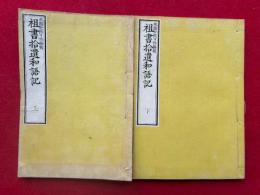 祖書拾遺和語記 上
祖書拾遺和語記 下